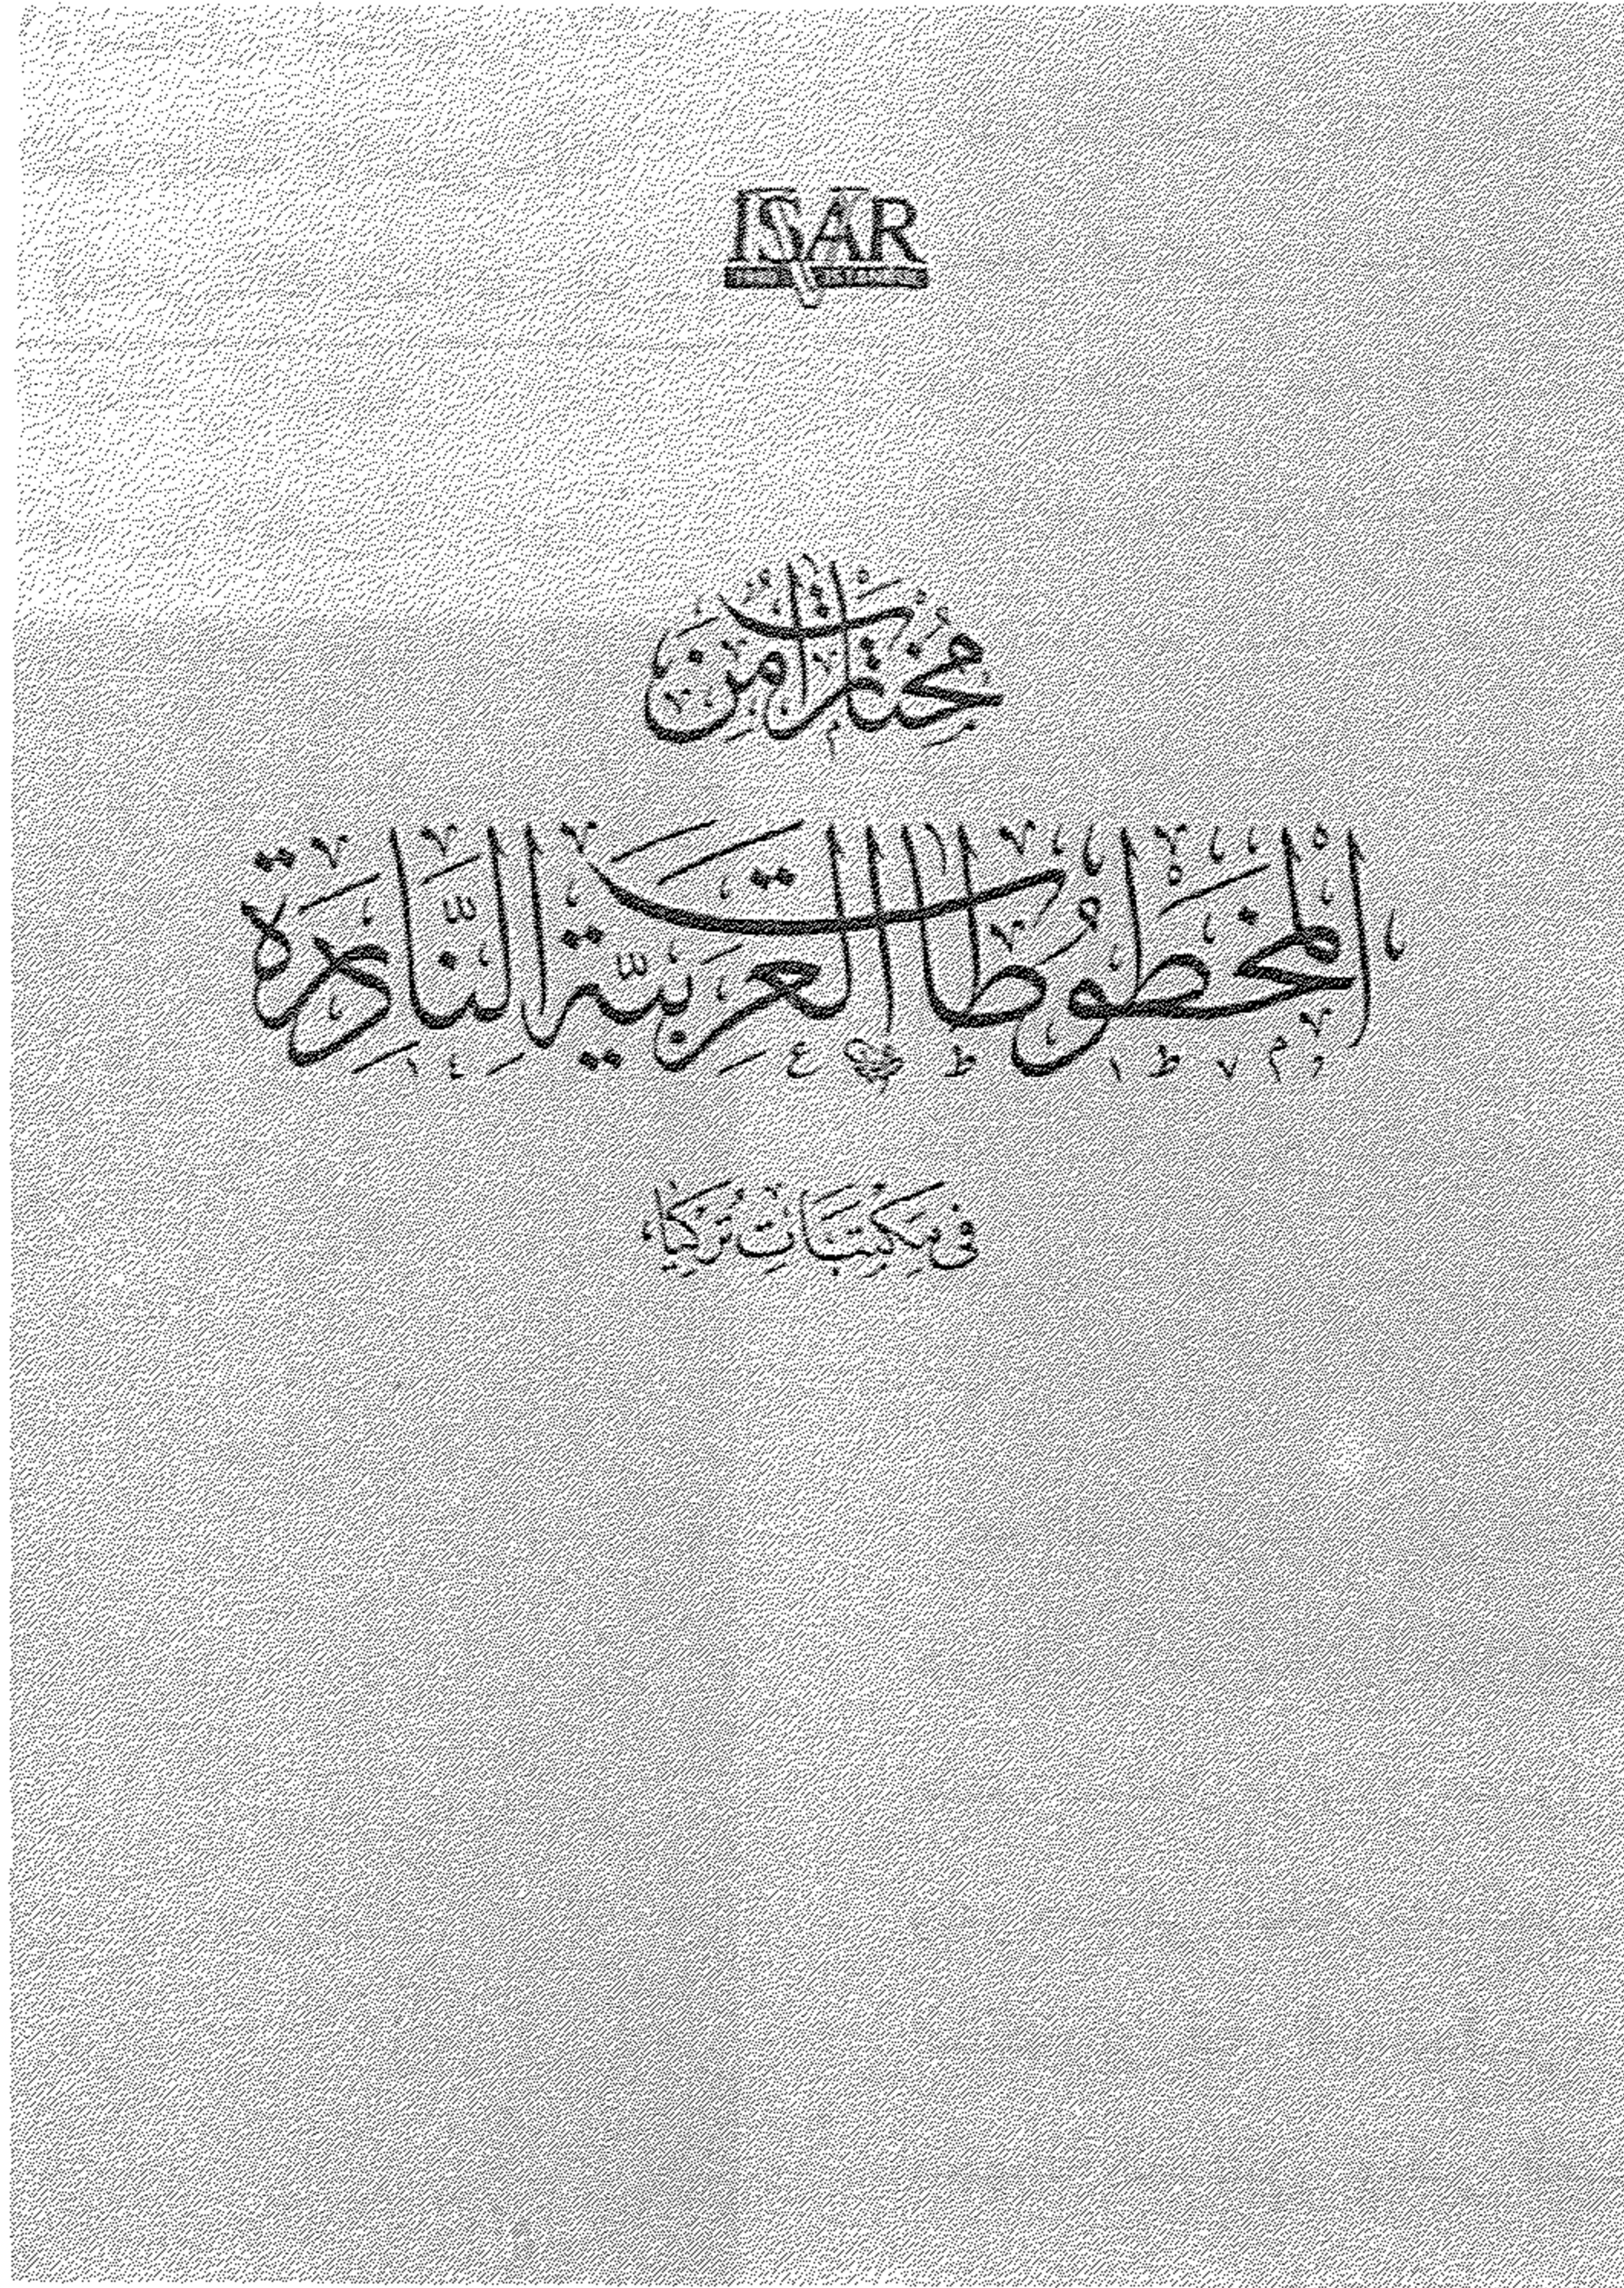 ISAR
مُخْتَارَاتٌ مِنَ
الْمَخْطُوطَاتِ الْعَرَبِيَّةِ النَّادِرَةِ
فِي مَكْتَبَاتِ تُرْكِيَا